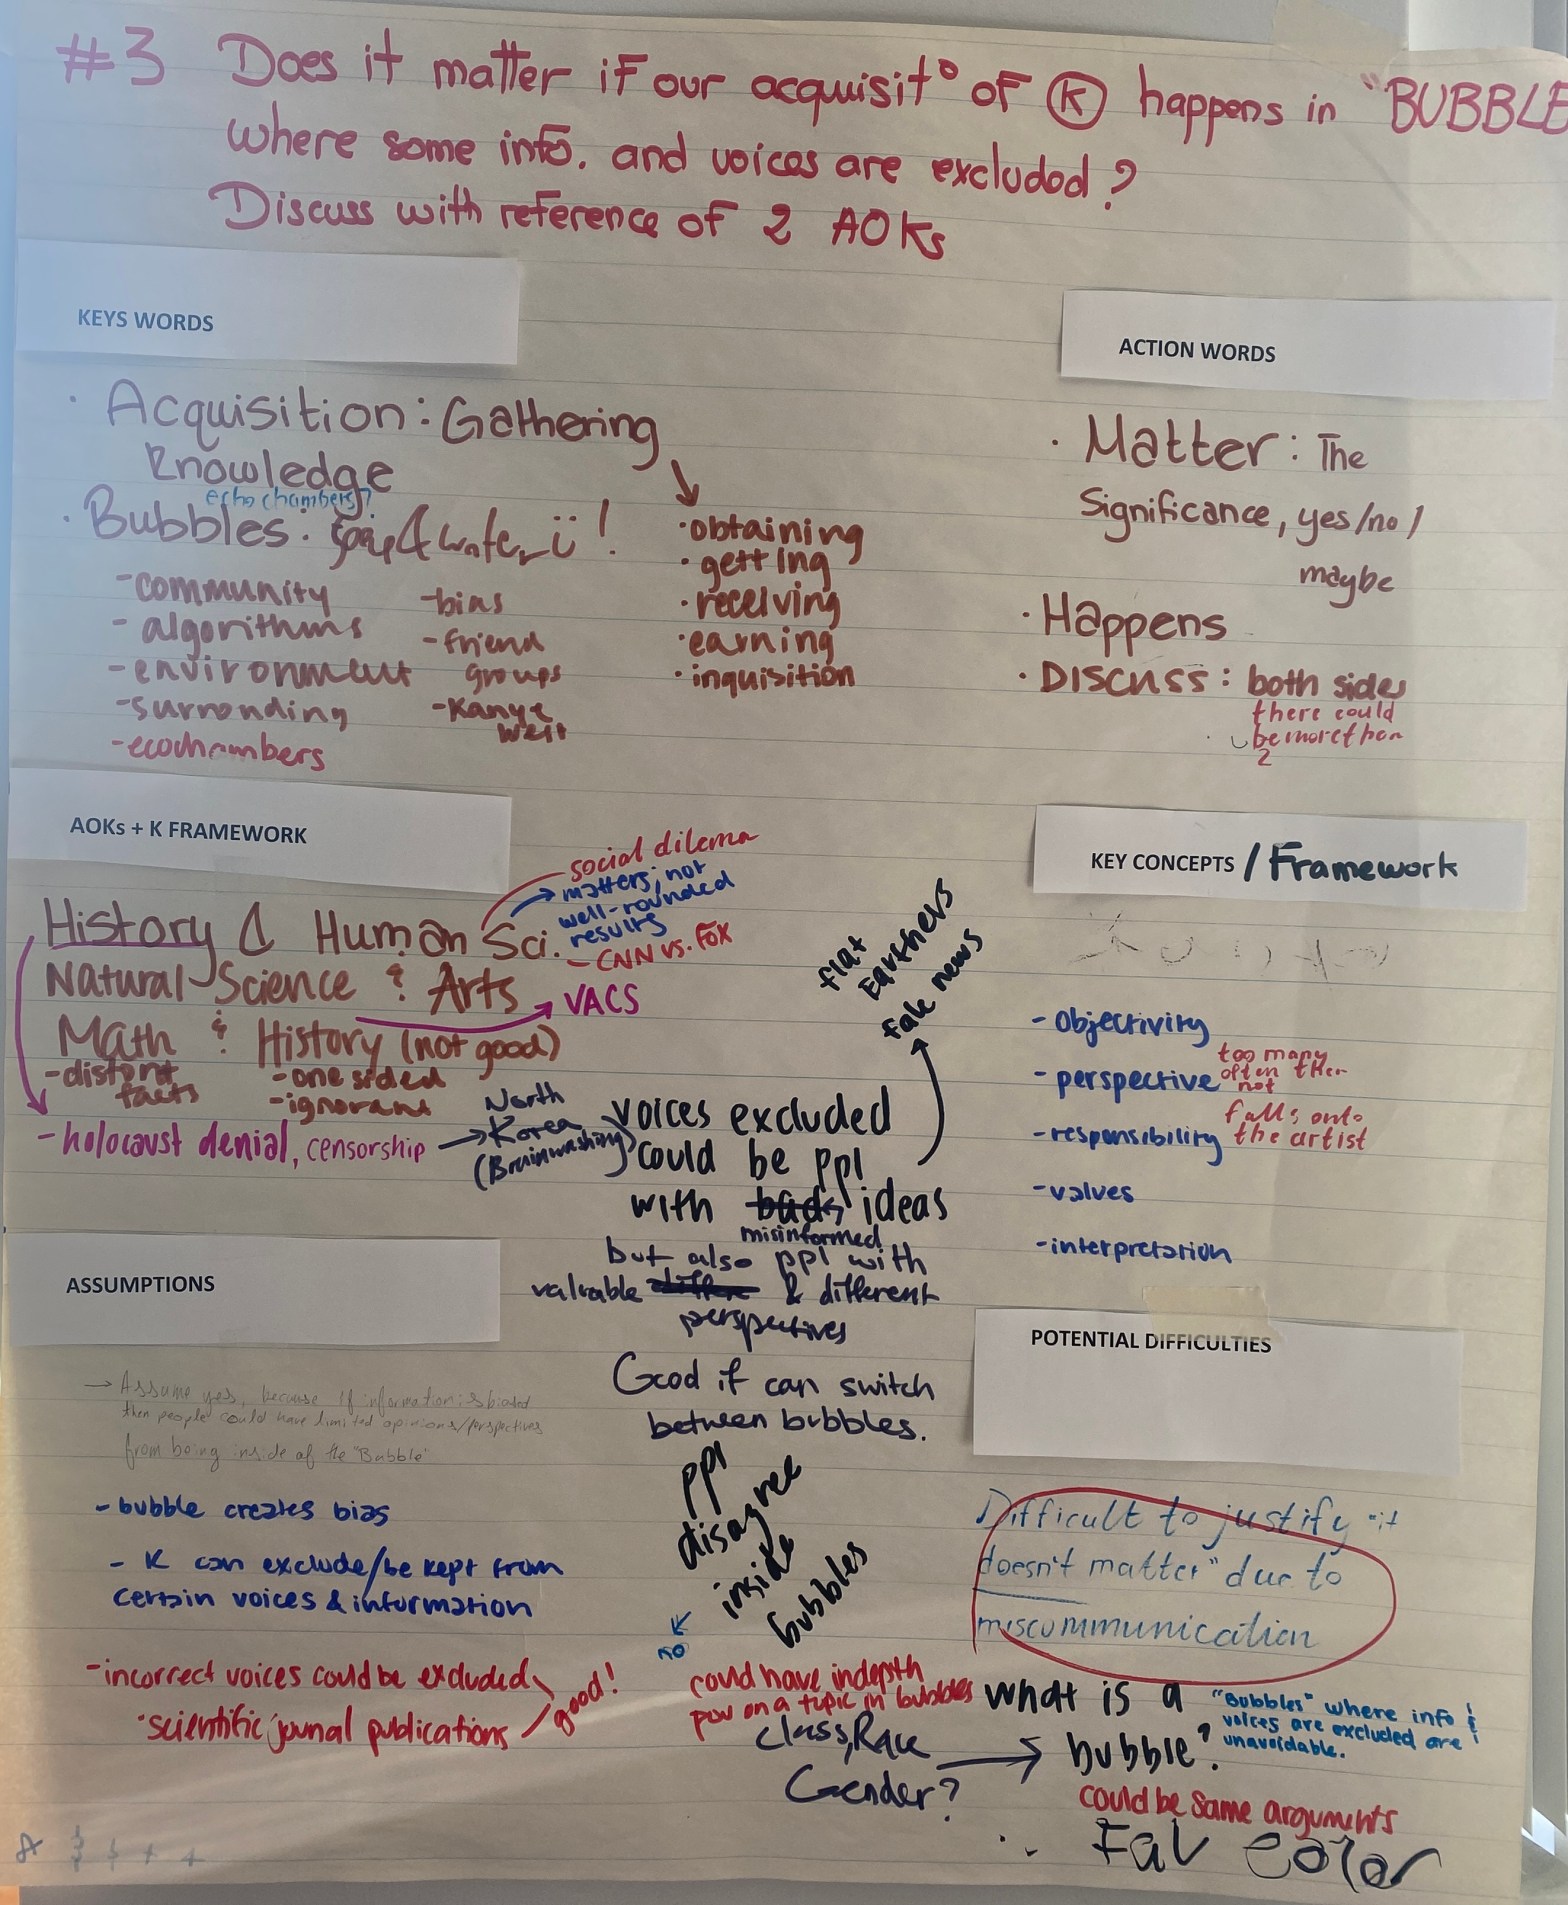 #3 Does it matter if our acquisit° of Ⓚ happens in "BUBBLE
where some info. and voices are excluded?
Discuss with reference of 2 AOKs
KEYS WORDS
· Acquisition: Gathering
knowledge
echo chambers?
· Bubbles: soap & water !
-community
- algorithms
-environment
-surronding
-ecochambers
-bias
-friend
groups
-Kanye
West
·obtaining
·getting
·receiving
·earning
·inquisition
ACTION WORDS
· Matter: The
Significance, yes/no/
maybe
· Happens
· DISCUSS: both sides
there could
be more than
2
AOKs + K FRAMEWORK
History & Human Sci.
social dilema
matters; not
well-rounded
results
- CNN vs. FOX
Natural Science & Arts
VACS
Math & History (not good)
-distort
facts
-one sided
-ignorant
-holocaust denial, censorship
North
Korea
(Brainwashing)
flat
Earthers
fake news
voices excluded
could be ppl
with bads ideas
misinformed
but also ppl with
valuable & different
perspectives
Good if can switch
between bubbles.
ppl
disagree
inside
bubbles
no
could have indepth
pov on a topic in bubbles
Class, Race
Gender?
KEY CONCEPTS / Framework
-objectivity
-perspective
too many
often then
not
-responsibility
falls onto
the artist
-values
-interpretation
ASSUMPTIONS
→ Assume yes, because if information is biased
then people could have limited opinions/perspectives
from being inside of the "Bubble"
- bubble creates bias
- K can exclude/be kept from
certain voices & information
-incorrect voices could be excluded
·scientific journal publications
good!
POTENTIAL DIFFICULTIES
Difficult to justify "it
doesn't matter" due to
miscommunication
what is a
bubble?
"Bubbles" where info &
voices are excluded are
unavoidable.
could be same arguments
Fav Color